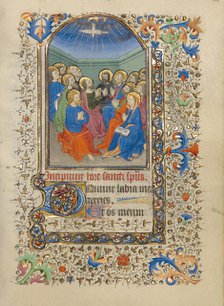 Incipiunt hore sancti sp̃us.
Domine labia me
a aperies.
Et os meum